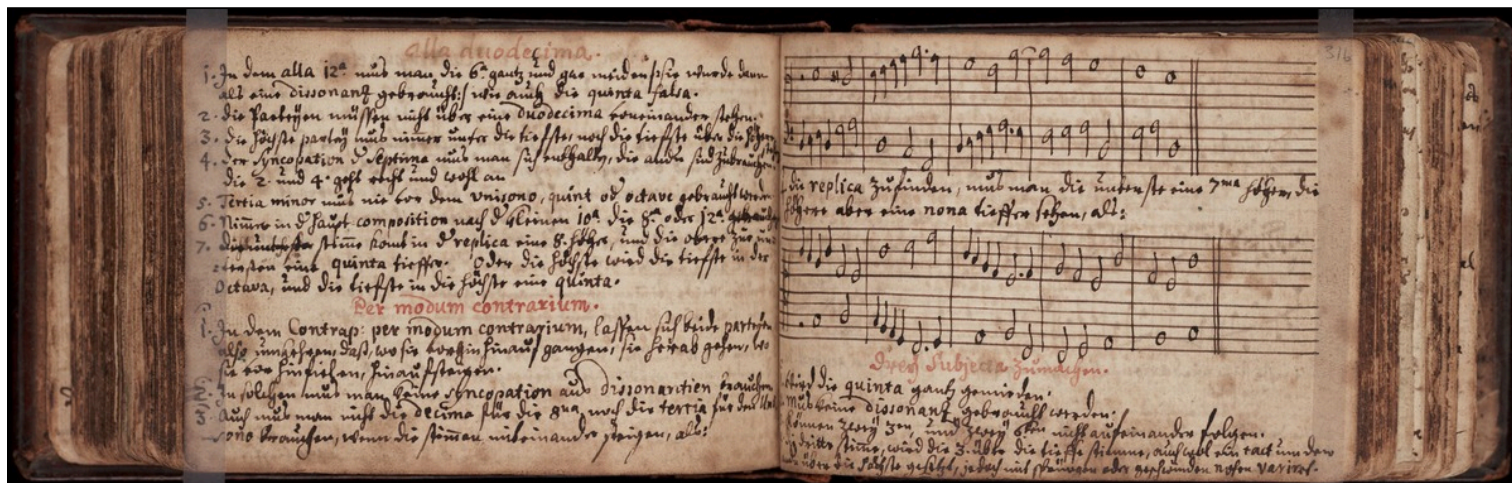 Alla duodecima.
1. In dem alla 12ª mus man die 6ª gantz und gar meiden /: sie wurde dann
als eine dissonantz gebraucht :/ wie auch die quinta falsa.
2. die Parteyen müssen nicht über eine duodecima voneinander stehen.
3. die höchste partey mus nimer unter die tiefste, noch die tiefste über die höhere
4. der Syncopation d Septima mus man sich enthalten, die andern sind zubrauchen
die 2. und 4. geht recht und wohl an
5. Tertia minor mus nie vor dem unisono, quint od octave gebraucht werden
6. Nimer in d haupt composition nach d kleinen 10ª die 8ª oder 12ª gebraucht
7. stime komt in d replica eine 8. höher, und die obere zur
eine quinta tieffer. Oder die höchste wird die tiefste in der
Octava, und die tiefste in die höchste eine quinta.
Per modum contrarium.
1. In dem Contrap: per modum contrarium, lassen sich beide parteyen
also umkehren, daß, wo sie vorhin hinauf gangen, sie herab gehen, wo
sie vor hinfielen, hinaufsteigen.
2. In solchen mus man keine syncopation aus dissonantien brauchen
3. Auch mus man nicht die decima für die 8va noch die tertia für den Uni
sono brauchen, wenn die stimen miteinander steigen, als:
316
die replica zufinden, mus man die unterste eine 7ma höher, die
höhere aber eine nona tieffer setzen, als:
Drey Subjecta zumachen.
wird die quinta gantz gemieden.
Mus keine dissonantz gebraucht werden.
können zwey 3en, und zwey 6ten nicht aufeinander folgen.
dritte stime, wird die 3. übr die tieffe stimme, auch wol ein tact um den
über die höchste gesetzt, jedoch mit oder geschwinden noten variret.